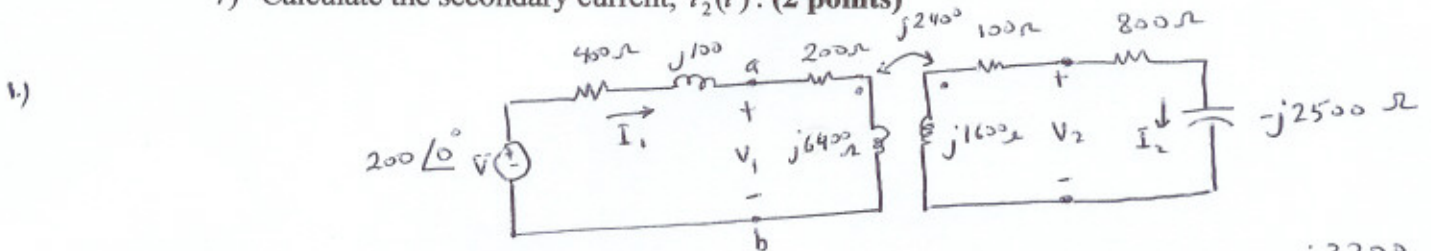 7) Calculate the secondary current, i₂(t). (2 points)
1.)
400Ω j100 a 200Ω j2400 100Ω 800Ω
+ +
200∠0° V + - I₁ V₁ j6400Ω j1600Ω V₂ I₂ -j2500 Ω
- -
b